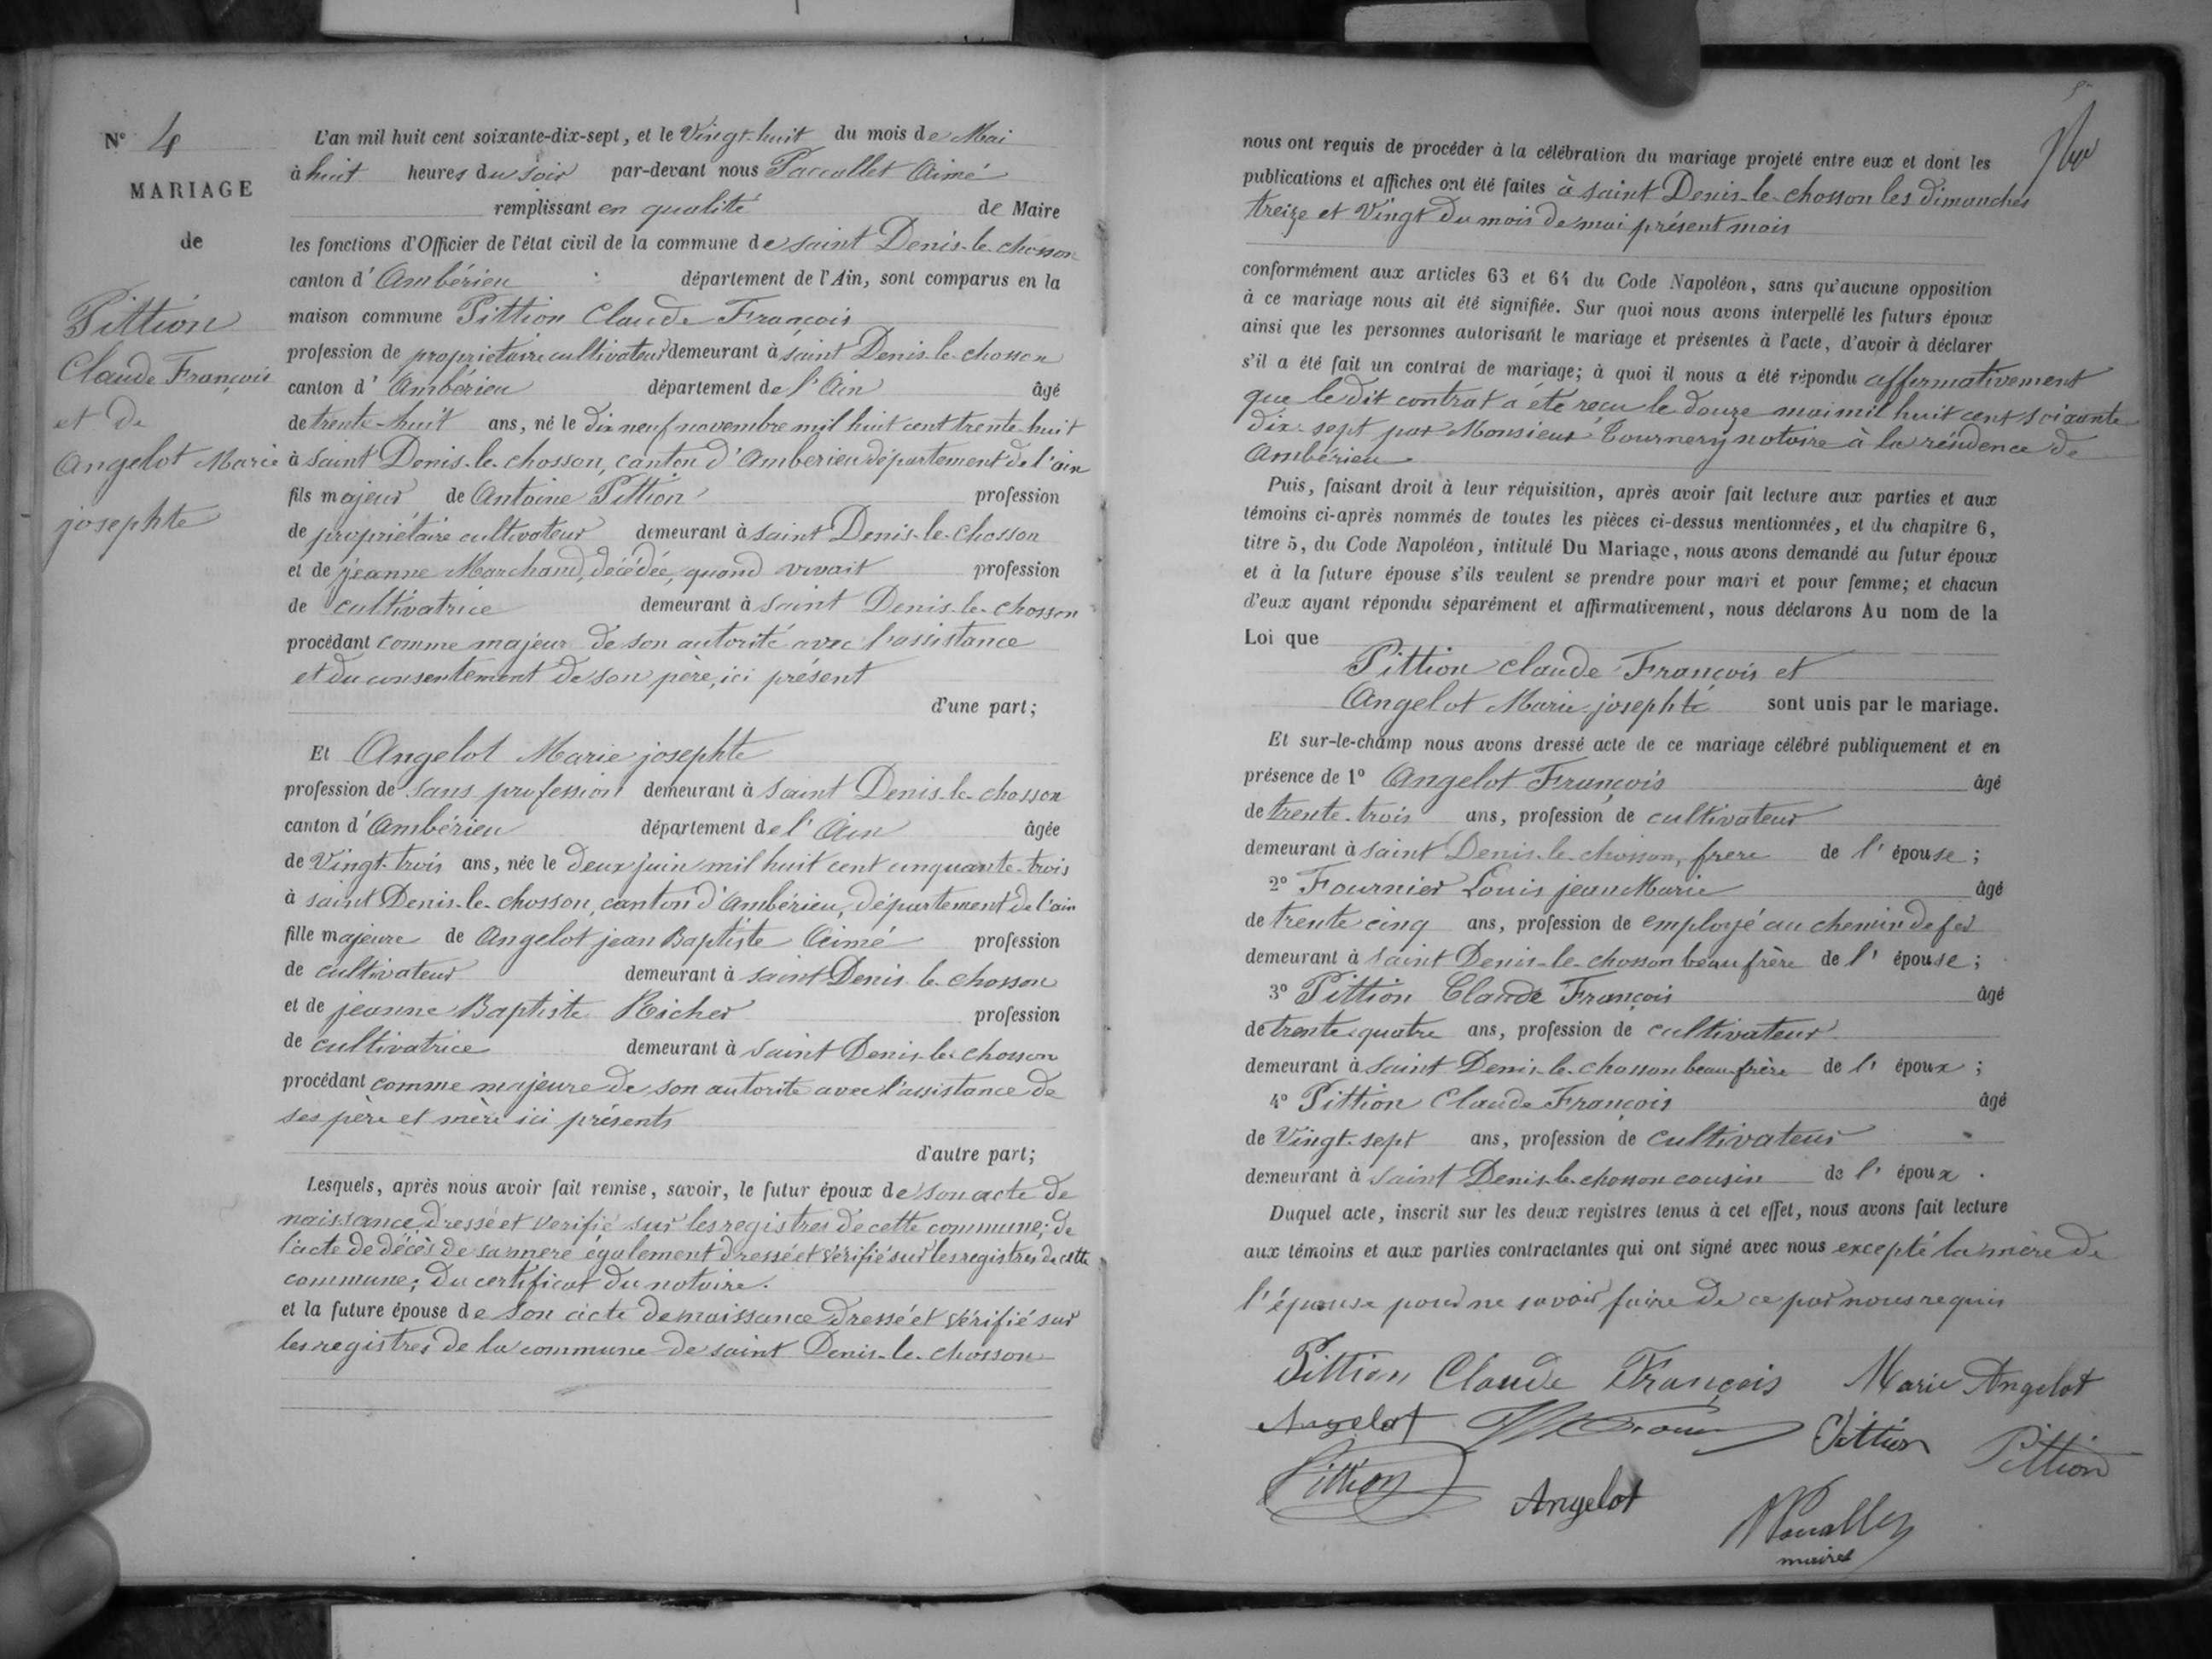 N° 4
MARIAGE
de
Pittion
Claude François
et de
Angelot Marie
josephte
L'an mil huit cent soixante-dix-sept, et le Vingt-huit du mois de Mai
à huit heures du soir par-devant nous Paccallet Aimé
remplissant en qualité de Maire
les fonctions d'Officier de l'état civil de la commune de saint Denis-le-chosson
canton d'Ambérieu département de l'Ain, sont comparus en la
maison commune Pittion Claude François
profession de propriétaire cultivateur demeurant à saint Denis-le-chosson
canton d'Ambérieu département de l'Ain âgé
de trente-huit ans, né le dix neuf novembre mil huit cent trente huit
à saint Denis-le-chosson, canton d'Amberieu département de l'ain
fils majeur de Antoine Pittion profession
de propriétaire cultivateur demeurant à saint Denis-le-chosson
et de jeanne Marchand, décédée, quand vivait profession
de cultivatrice demeurant à saint Denis-le-chosson
procédant comme majeur de son autorité avec l'assistance
et du consentement de son père, ici présent
d'une part;
Et Angelot Marie josephte
profession de sans profession demeurant à saint Denis-le-chosson
canton d'Ambérieu département de l'Ain âgée
de Vingt-trois ans, née le deux juin mil huit cent cinquante-trois
à saint Denis-le-chosson, canton d'Ambérieu, département de l'ain
fille majeure de Angelot jean Baptiste Aimé profession
de cultivateur demeurant à saint Denis le chosson
et de jeanne Baptiste Richer profession
de cultivatrice demeurant à saint Denis-le-chosson
procédant comme majeure de son autorite avec l'assistance de
ses père et mère ici présents
d'autre part;
Lesquels, après nous avoir fait remise, savoir, le futur époux de son acte de
naissance dressé et verifié sur les registres de cette commune; de
l'acte de décès de sa mere également dressé et vérifié sur les registres de cette
commune; du certificat du notaire.
et la future épouse de son acte de naissance dressé et vérifié sur
les registres de la commune de saint Denis-le-chosson
nous ont requis de procéder à la célébration du mariage projeté entre eux et dont les
publications et affiches ont été faites à saint Denis-le-chosson les dimanches
treize et Vingt du mois de mai présent mois
conformément aux articles 63 et 64 du Code Napoléon, sans qu'aucune opposition
à ce mariage nous ait été signifiée. Sur quoi nous avons interpellé les futurs époux
ainsi que les personnes autorisant le mariage et présentes à l'acte, d'avoir à déclarer
s'il a été fait un contrat de mariage; à quoi il nous a été répondu affirmativement
que le dit contrat a été reçu le douze mai mil huit cent soixante
dix-sept par Monsieur Tournery notaire à la résidence de
Ambérieu
Puis, faisant droit à leur réquisition, après avoir fait lecture aux parties et aux
témoins ci-après nommés de toutes les pièces ci-dessus mentionnées, et du chapitre 6,
titre 5, du Code Napoléon, intitulé Du Mariage, nous avons demandé au futur époux
et à la future épouse s'ils veulent se prendre pour mari et pour femme; et chacun
d'eux ayant répondu séparément et affirmativement, nous déclarons Au nom de la
Loi que
Pittion claude François et
Angelot Marie josephte sont unis par le mariage.
Et sur-le-champ nous avons dressé acte de ce mariage célébré publiquement et en
présence de 1° Angelot François âgé
de trente-trois ans, profession de cultivateur
demeurant à saint Denis-le-chosson, frere de l'épouse;
2° Fournier Louis jean Marie âgé
de trente cinq ans, profession de employé au chemin de fer
demeurant à saint Denis-le-chosson beau frère de l'épouse;
3° Pittion Claude François âgé
de trente-quatre ans, profession de cultivateur
demeurant à saint Denis-le-chosson beau-frère de l'époux;
4° Pittion Claude François âgé
de Vingt-sept ans, profession de cultivateur
demeurant à saint Denis-le-chosson cousin de l'époux.
Duquel acte, inscrit sur les deux registres tenus à cet effet, nous avons fait lecture
aux témoins et aux parties contractantes qui ont signé avec nous excepté la mère de
l'épouse pour ne savoir faire de ce par nous requis
Pittion Claude François Marie Angelot
Angelot Pittion Pittion
Pittion Angelot
maire